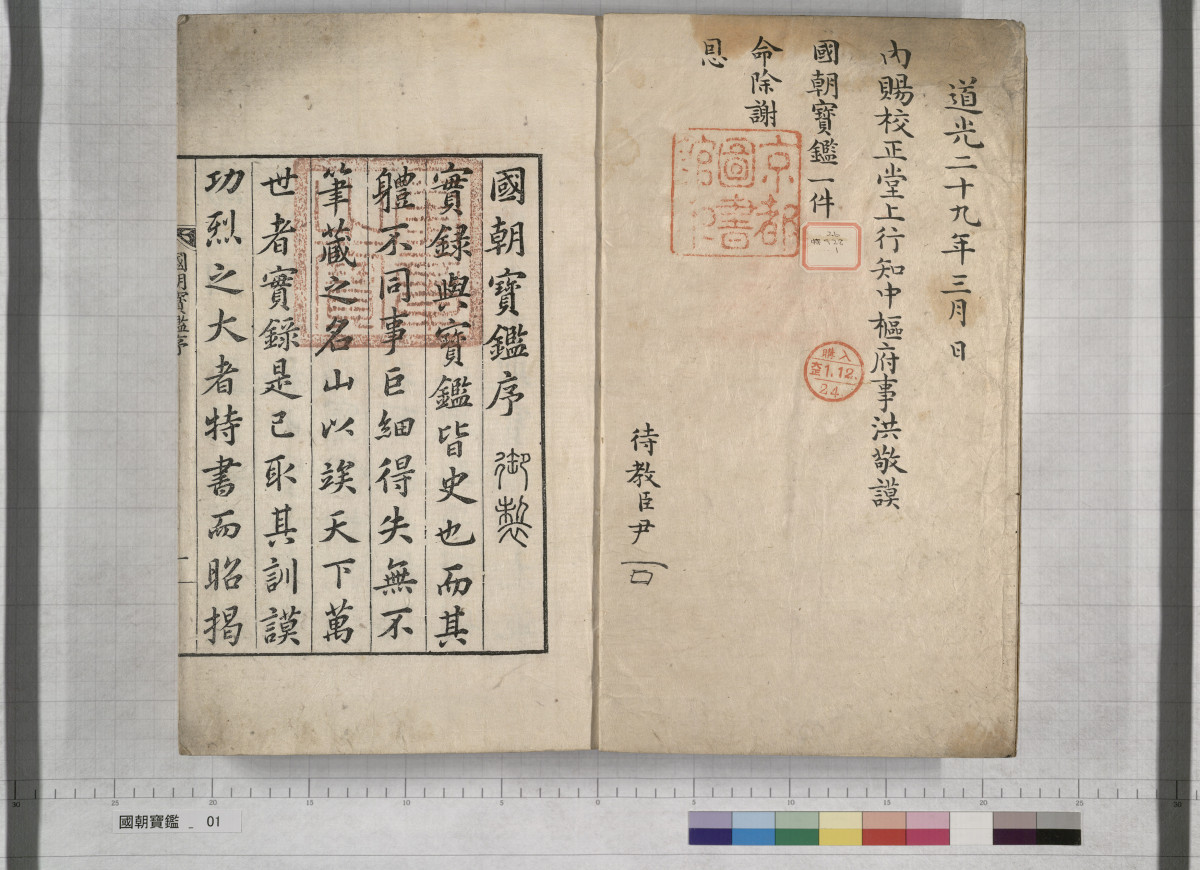 道光二十九年三月 日
內賜校正堂上行知中樞府事洪敬謨
國朝寶鑑一件
命除謝
恩
待教臣尹
京都
圖書
館
購入
1.12.
24.
國朝寶鑑序 御製
實錄與寶鑑皆史也而其
軆不同事巨細得失無不
筆蔵之名山以竢天下萬
世者實錄是已取其訓謨
功烈之大者特書而昭揭
國朝寶鑑序
一
30 25 20 15 10 5 0 5 10 15 20 25 30
國朝寶鑑 _ 01